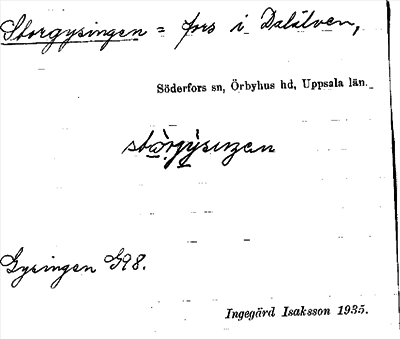 Storgysingen = fors i Dalälven,
Söderfors sn, Örbyhus hd, Uppsala län.
stòrgýsıŋen
Gysingen G98.
Ingegärd Isaksson 1935.